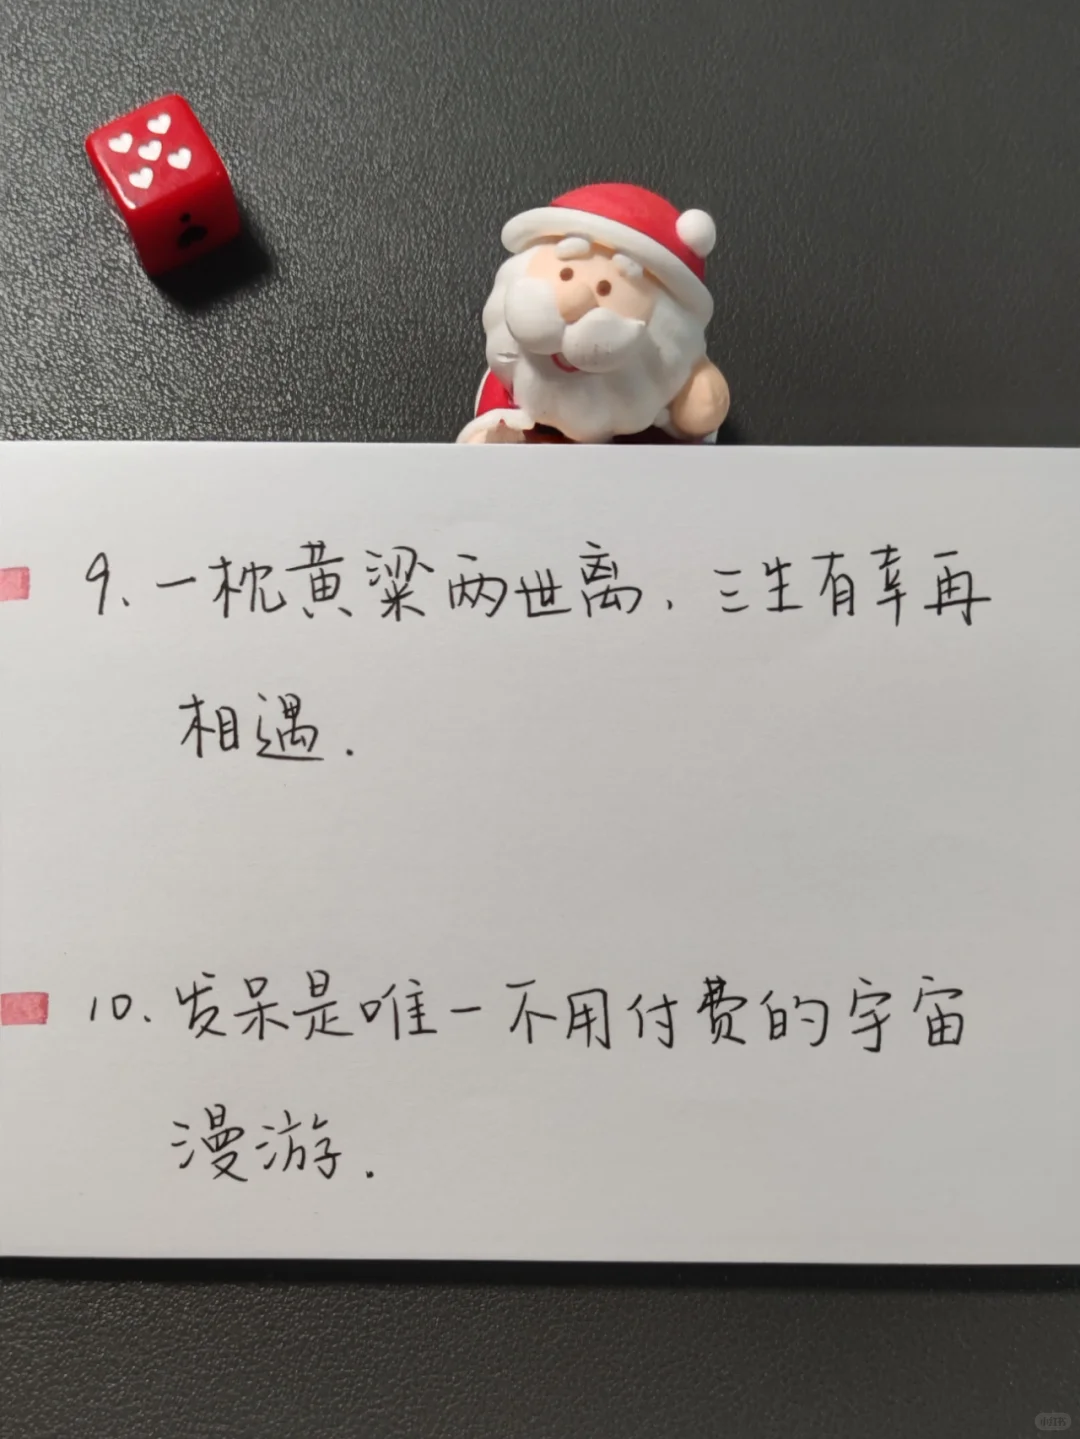 9. 一枕黄粱两世离, 三生有幸再
相遇.
10. 发呆是唯一不用付费的宇宙
漫游.